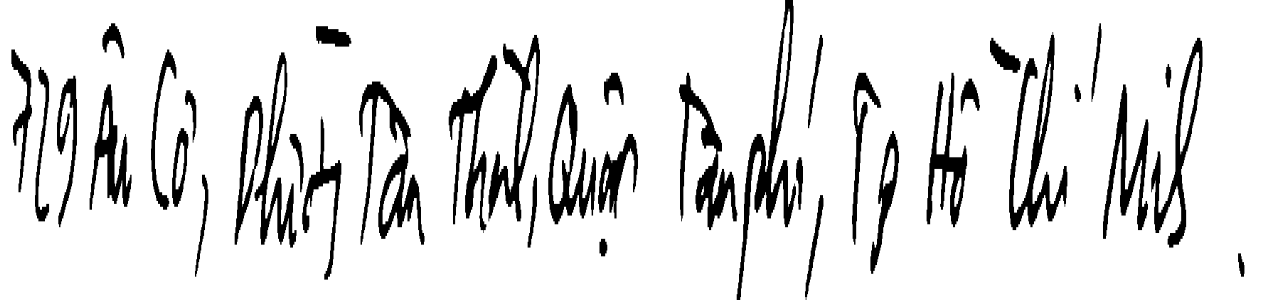 729 Âu Cơ, Phường Tân Thành, Quận Tân phú, Tp Hồ Chí Minh